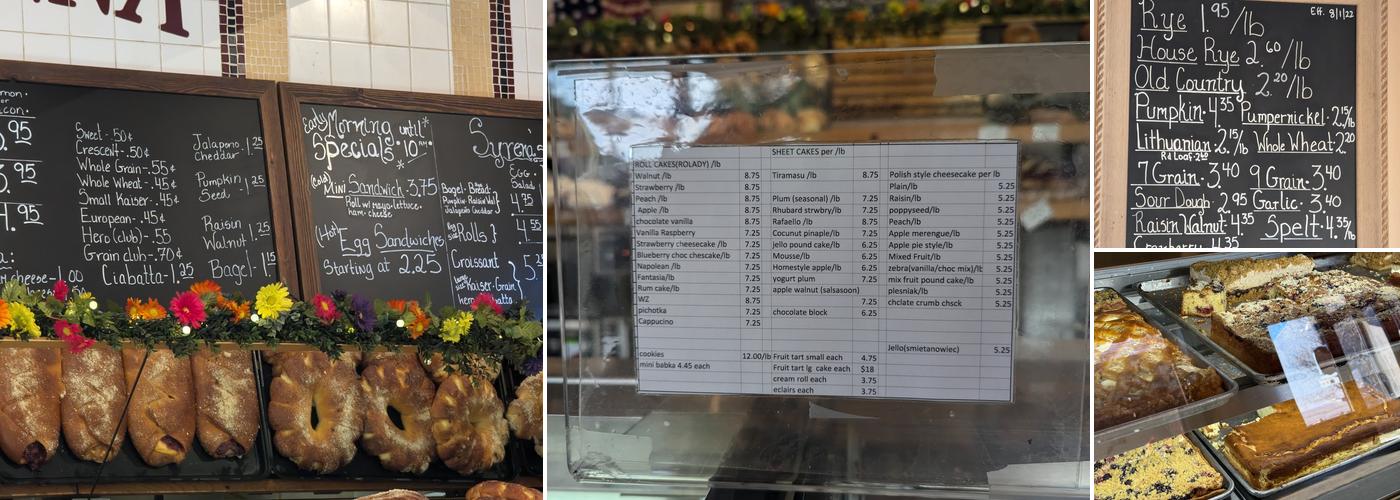 NA
mon·
or
con·
.95
3.95
4.95
a:
cheese-1.00
Sweet-.50¢
Crescent-.50¢
Whole Grain-.55¢
Whole Wheat-.45¢
Small Kaiser-.45¢
European-.45¢
Hero (club)-.55
Grain club-.70¢
Ciabatta-1.25
Jalapeno cheddar-1.25
Pumpkin Seed-1.25
Raisin Walnut-1.25
Bagel-1.15
Early Morning until
Specials· 10am
*
(Cold)
Mini Sandwich 3.75
Roll w/mayo·lettuce·
ham·cheese·
(Hot) Egg Sandwiches
Starting at 2.25
Syrena's
Egg·
Salad
Bagel·Bread·
Pumpkin·Raisin Wal
Jalapeno Cheddar
Rolls
Croissant
Kaiser·Grain
ROLL CAKES(ROLADY) /lb
Walnut /lb 8.75
Strawberry /lb 8.75
Peach /lb 8.75
Apple /lb 8.75
chocolate vanilla 8.75
Vanilla Raspberry 7.25
Strawberry cheesecake /lb 7.25
Blueberry choc chescake/lb 7.25
Napolean /lb 7.25
Fantasia/lb 7.25
Rum cake/lb 7.25
WZ 8.75
pichotka 7.25
Cappucino 7.25
cookies 12.00/lb
mini babka 4.45 each
SHEET CAKES per /lb
Tiramasu /lb 8.75
Plum (seasonal) /lb 7.25
Rhubard strwbry/lb 7.25
Rafaello /lb 8.75
Coconut pinaple/lb 7.25
jello pound cake/lb 6.25
Mousse/lb 6.25
Homestyle apple/lb 6.25
yogurt plum 7.25
apple walnut (salsasoon)
7.25
chocolate block 6.25
Fruit tart small each 4.75
Fruit tart lg cake each $18
cream roll each 3.75
eclairs each 3.75
Polish style cheesecake per lb
Plain/lb 5.25
Raisin/lb 5.25
poppyseed/lb 5.25
Peach/lb 5.25
Apple merengue/lb 5.25
Apple pie style/lb 5.25
Mixed Fruit/lb 5.25
zebra(vanilla/choc mix)/lb 5.25
mix fruit pound cake/lb 5.25
plesniak/lb 5.25
chclate crumb chsck 5.25
Jello(smietanowiec) 5.25
Eff. 8/1/22
Rye 1.95/lb
House Rye 2.60/lb
Old Country 2.20/lb
Pumpkin·4.35 Pumpernickel·2.15/lb
Lithuanian 2.15/lb Whole Wheat·2.20
7 Grain·3.40 9 Grain·3.40
Sour Dough·2.95 Garlic·3.40
Raisin Walnut·4.35 Spelt·4.35/lb
Cranberry 4.35